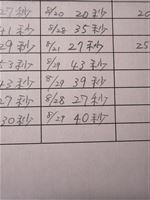 27秒 8/20 20秒 20
41秒 8/28 35秒
29秒 8/21 27秒 25
53秒 8/29 43秒
43秒 8/29 39秒
27秒 8/28 27秒
30秒 8/29 40秒